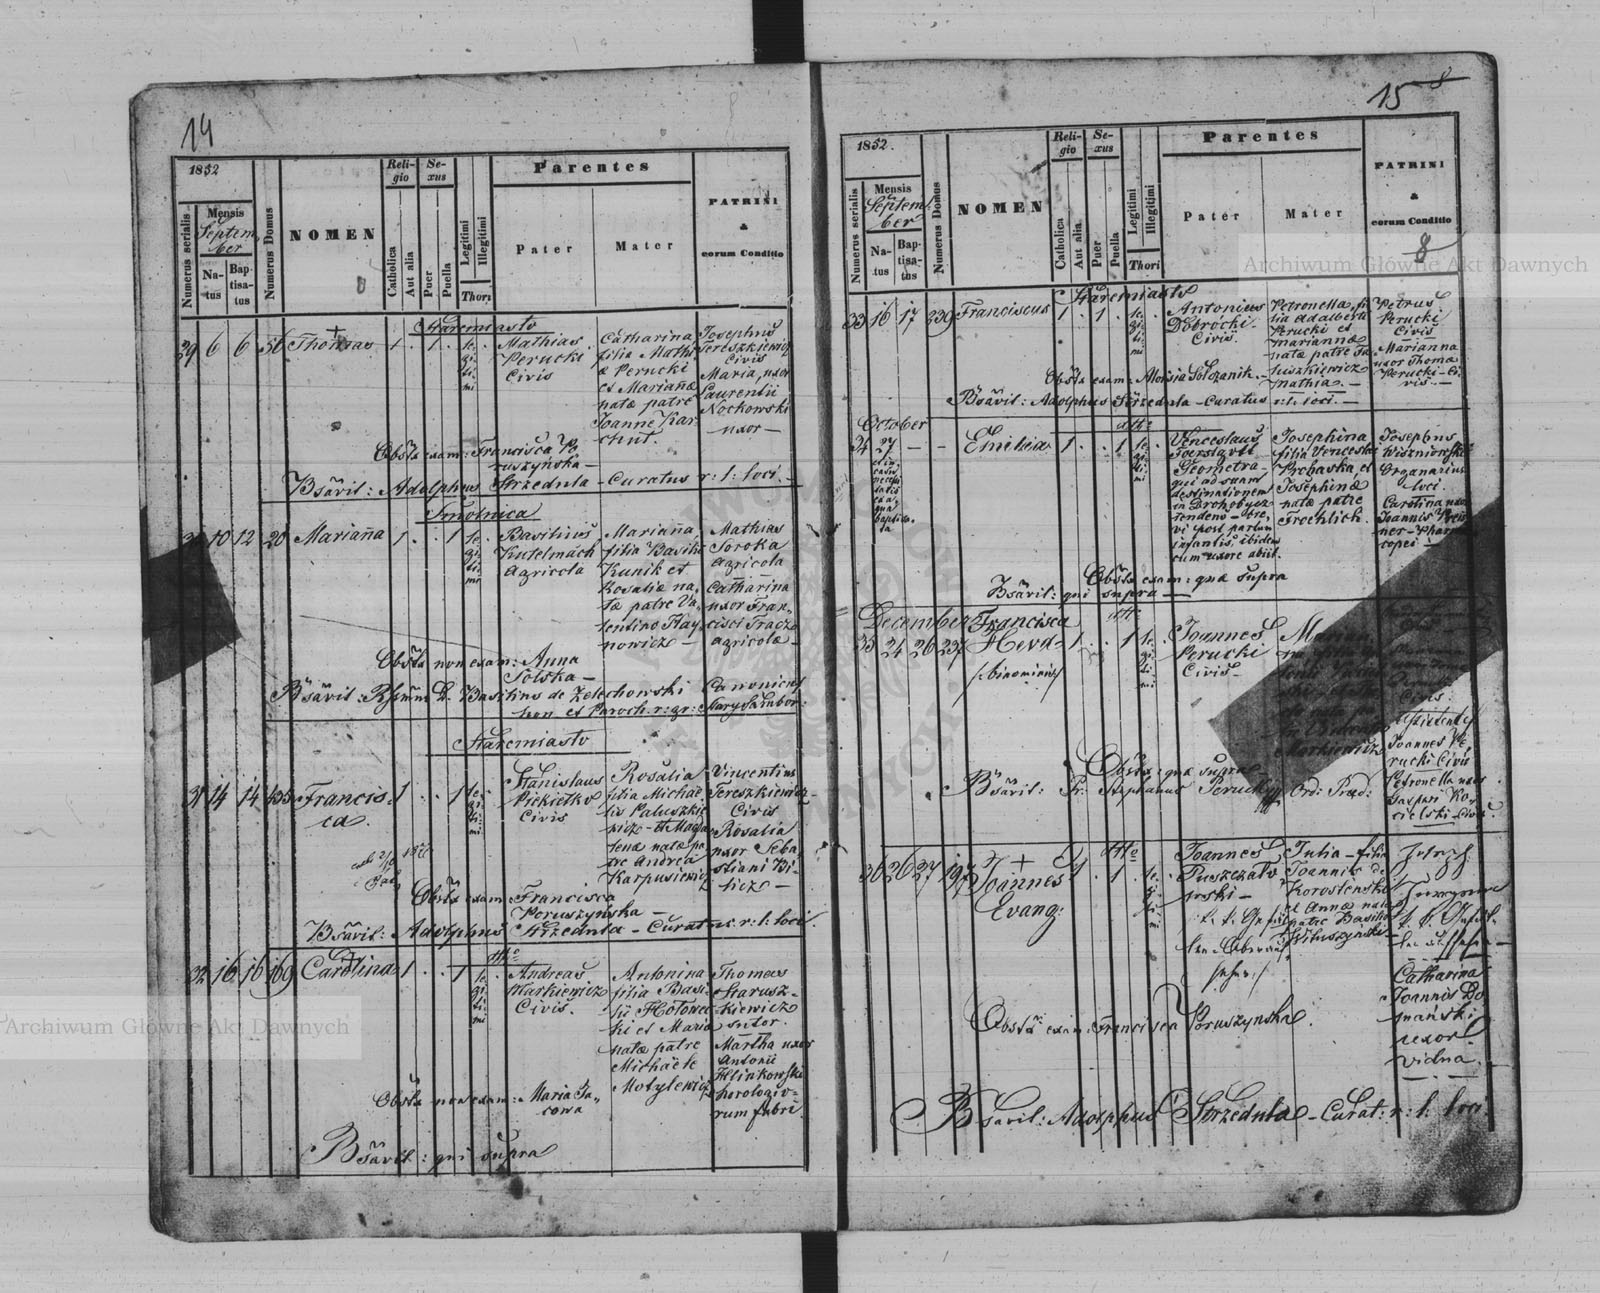 14
1852
Numerus serialis
Mensis
Septem
ber
Na-
tus
Bap-
tisa-
tus
Numerus Domus
NOMEN
Reli-
gio
Catholica
Aut alia
Se-
xus
Puer
Puella
Legitimi
Illegitimi
Thori
Parentes
Pater
Mater
PATRINI
&
eorum Conditio
Staremiasto
29 6 6 56 Thomas 1 . 1 . le
gi
ti
mi
Mathias
Perucki
Civis
Catharina
filia Mathi
æ Perucki
et Mariañæ
natæ patre
Joanne Kar
Josephus
Tereszkiewicz
Civis
Maria, uxor
Laurentii
Nockowski
uxor —
Obsta exam: Francisca Po
ruszyńska —
Bsävit: Adolphus Strzedula - Curatus r: l: loci. -
Smolnica
10 12 20 Mariaña 1 . . 1 le
gi
ti
mi
Basilius
Kutelmach
Agricola
Mariaña,
filia Basilii
Kunik et
Rosaliæ na,
tæ patre Va,
lentino Hay,
nowicz —
Mathias
Soroka
Agricola
Catharina
uxor Fran,
cisci Tracz
agricolæ —
Obsta non exam: Anna
Solska —
Bsävit: Rssmüs D. Basilius de Zelechowski Canonicus
hon et Paroch. r: gr: Stary Sambor:
Staremiasto
31 14 14 435 Francis-
ca.
1 . . 1 le
gi
ti
mi
Stanislaus
Pickietko
Civis
Rosalia
filia Michae
lis Paluszkie
wicz - et Magda
lenæ natæ pa
tre Andrea
Karpusiewicz
Vincentius
Tereszkiewicz -
Civis
Rosalia
uxor Seba,
stiani Bi-
licz —
Obsta exam: Francisca
Poruszyńska —
Bsävit: Adolphus Strzedula - Curatus r: l: loci.
dtto
32 16 16 169 Carolina 1 . . 1 le
gi
ti
mi
Andreas
Markiewicz
Civis.
Antonina
filia Basi-
lii Hotowec
ki et Maria
natæ patre
Michaele
Motylewicz
Thomas
Starusz-
kiewicz
sutor.
Martha uxor
Antonii
Hlinkowski
horologio-
rum fabri
Obsta non exam: Maria Ja,
cowa
Bsävit: qui supra
15 8
1852.
Numerus serialis
Mensis
Septem
ber
Na-
tus
Bap-
tisa-
tus
Numerus Domus
NOMEN
Reli-
gio
Catholica
Aut alia
Se-
xus
Puer
Puella
Legitimi
Illegitimi
Thori
Parentes
Pater
Mater
PATRINI
&
eorum Conditio
8
Archiwum Główne Akt Dawnych
Staremiasto
33 16 17 239 Franciscus 1 . 1 . le
gi
ti
mi
Antonius
Dobrocki.
Civis.
Petronella, fi
lia Adalberti
Perucki et
Mariannæ
natæ patre Ja
luszkiewicz
Mathia. —
Petrus
Perucki
Civis
Marianna
uxor Thomæ
Perucki - Ci
vis. —
Obsta exam: Aloisia Solczanik. —
Bsävit: Adolphus Strzedula - Curatus r: l: loci. —
October
dtto
34 27 — — Emilia 1 . . 1 le
gi
ti
mi
et in
casu
necessi
tatis
aqua
baptisa-
ta
Venceslaus
Geometra -
qui ad suam
destinationem
in Drohobycz
tendens - bre,
vi post partum
infantis, ibidem
cum uxore abiit.
Josephina
filia Venceslai
Prohaska, et
Josephinæ
natæ patre
Froehlich.
Josephus
Wiszniowski
Organarius
loci.
Carolina uxor
Joannis Preis
ner - Pharma
copei —
Obsta exam: quæ supra
Bsävit: qui supra —
December
dtto
35 24 26 237 Francisca
Heva
/:binomini:/
1 . . 1 le
gi
ti
mi
Joannes
Perucki
Civis -
Markiewicz
Civis.
Assistentes
Joannes Pe,
rucki Civis
Petronella uxor
Gaspari Ko-
cielski - Civis.
Obsta: quæ supra
Bsävit: Fr. Stephanus Perucki Ord: Præd:
dtto
36 26 27 197 Joannes
Evang:
1 . 1 . le
gi
ti
mi
Joannes
Puszczało
wski -
Julia - filia
Joannis de
Korostenski
et Annæ natæ
patre Basilio
Wiluszyński -
Catharina
Joannis Do
mański
uxor
vidua.
Obsta exam: Francisca Poruszyńska.
Bsävit: Adolphus Strzedula - Curat: r: l: loci.
Archiwum Główne Akt Dawnych